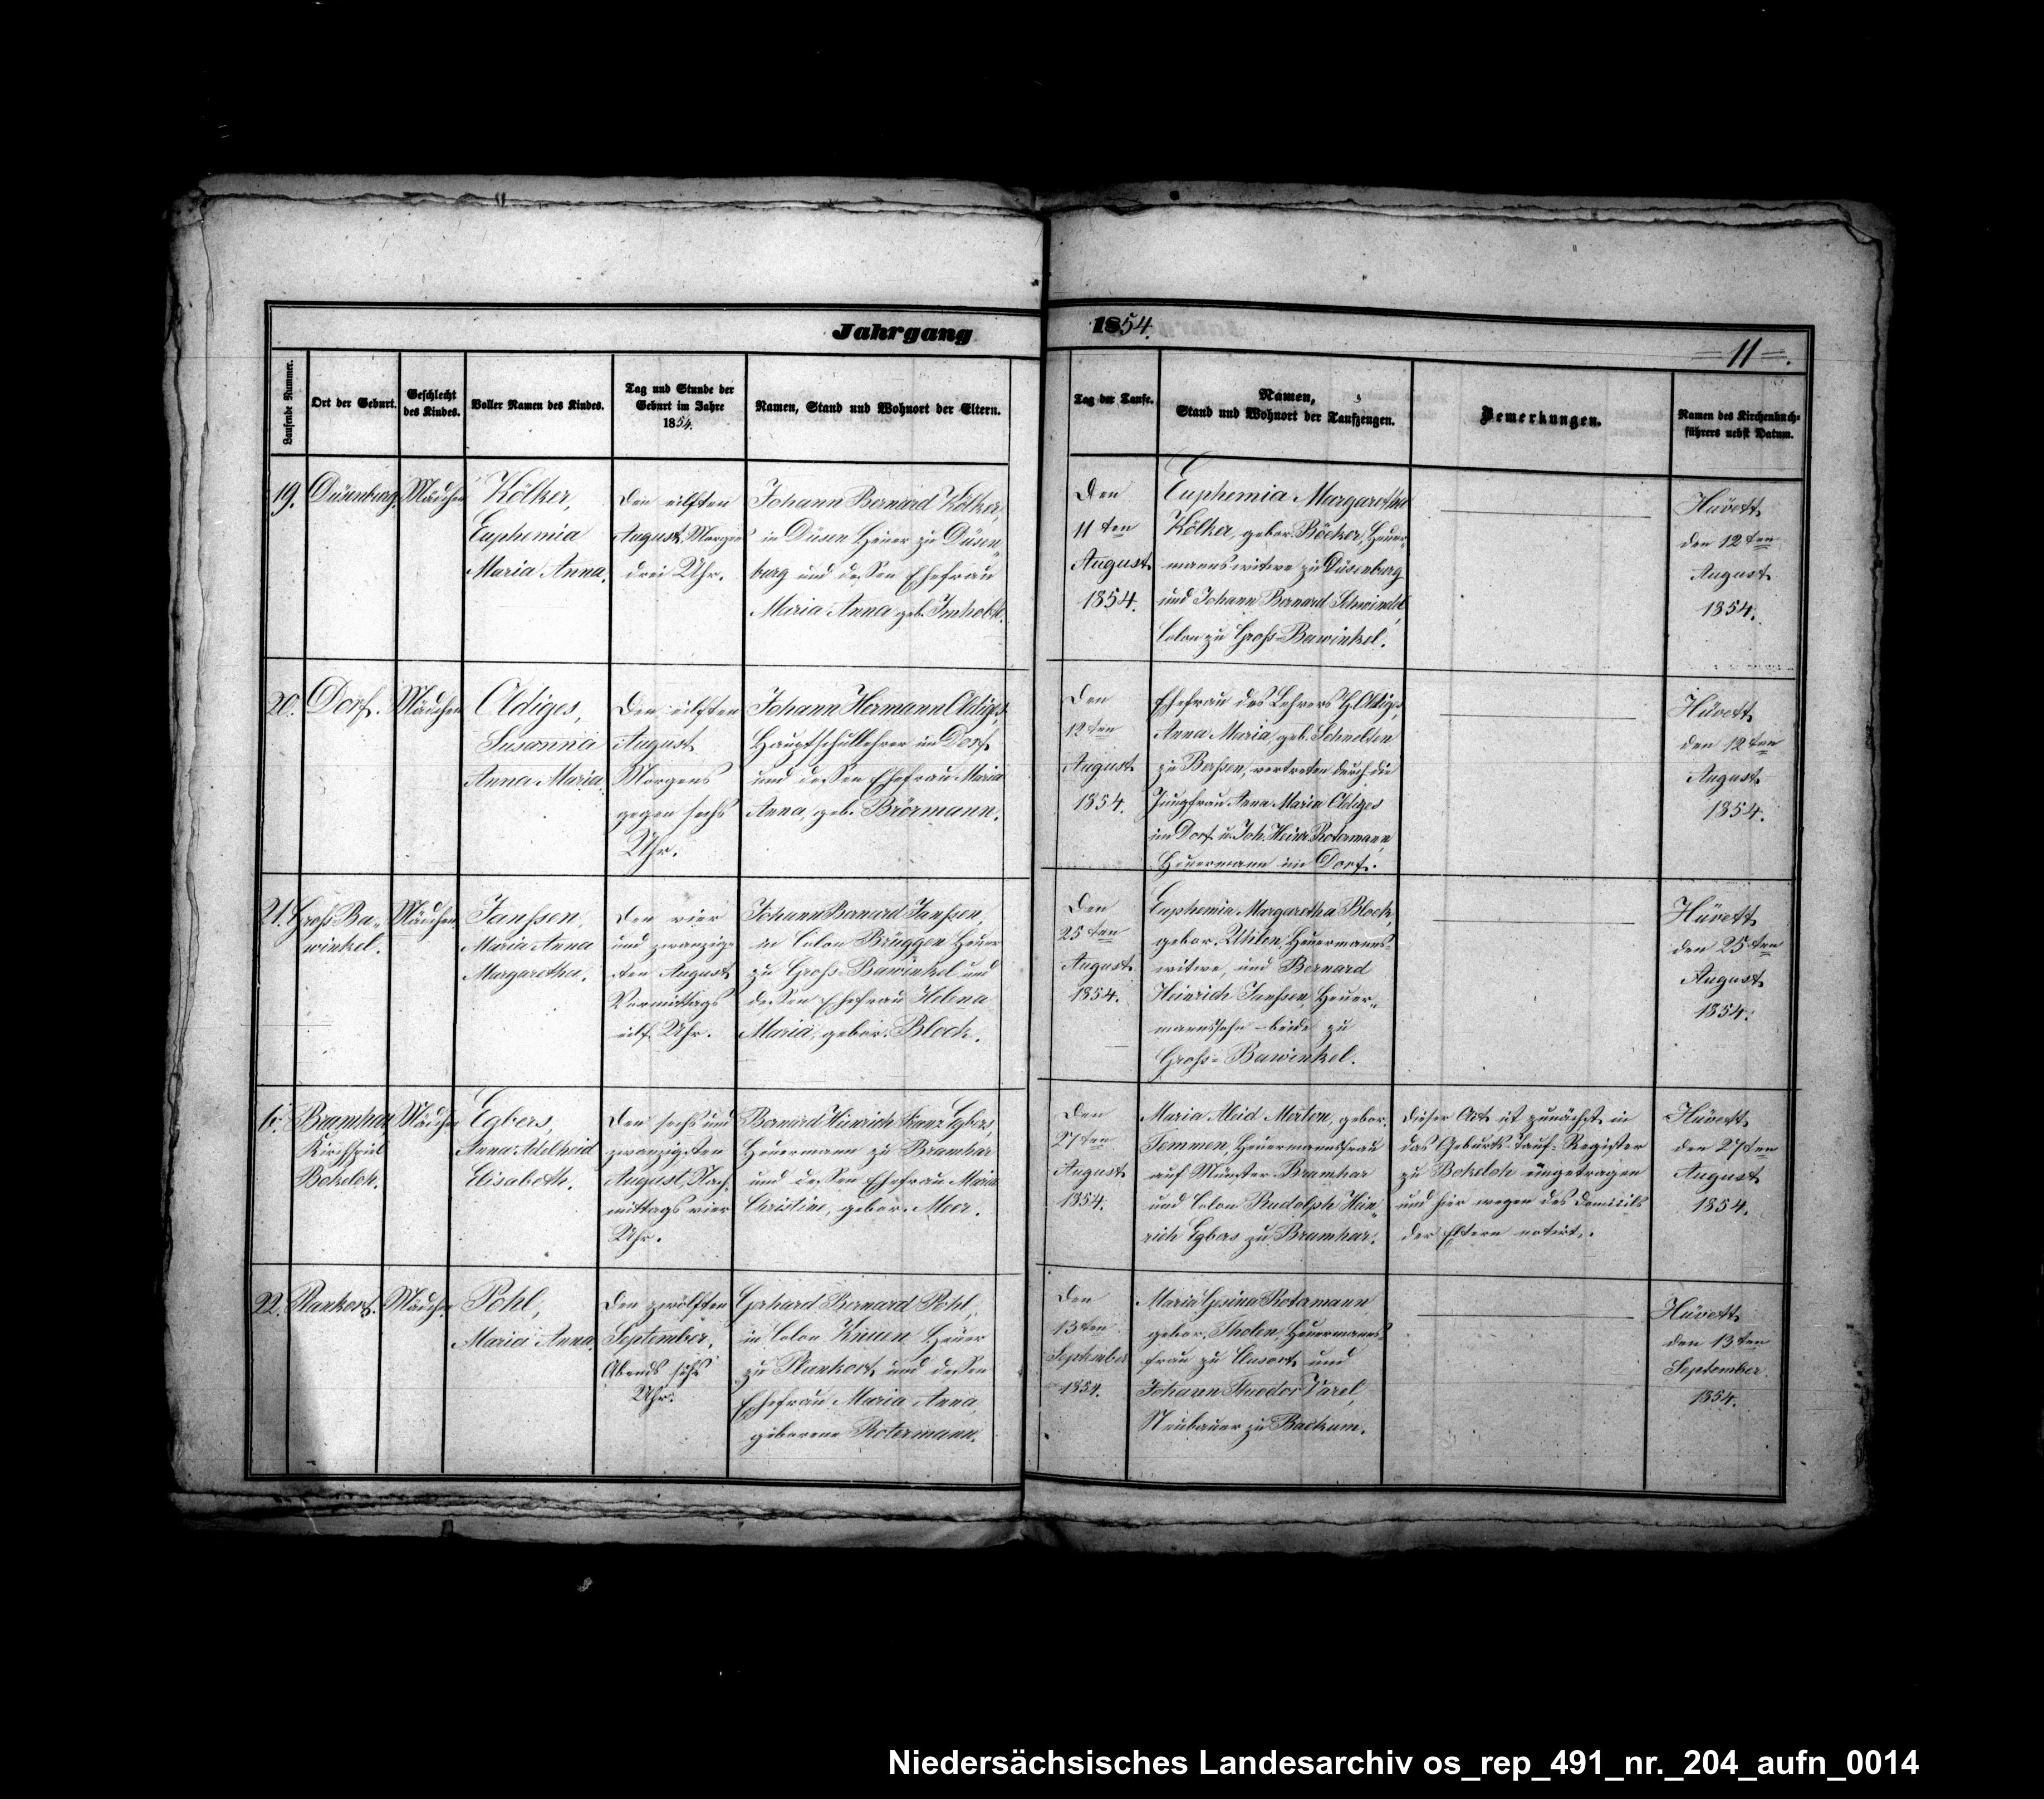 Jahrgang 1854.
=11=.
Laufende Nummer.
Ort der Geburt.
Geschlecht
des Kindes.
Voller Namen des Kindes.
Tag und Stunde der
Geburt im Jahre
1854.
Namen, Stand und Wohnort der Eltern.
Tag der Taufe.
Namen,
Stand und Wohnort der Taufzeugen.
Bemerkungen.
Namen des Kirchenbuch-
führers nebst Datum.
19.
Düsenburg.
Mädchen
Kölker,
Euphemia
Maria Anna.
Den eilften
August, Morgens
drei Uhr.
Johann Bernard Kölker,
in Düsen Heuer zu Düsen-
burg und dessen Ehefrau
Maria Anna geb. Imholt.
Den
11ten
August
1854.
Euphemia Margaretha
Kölker, gebor. Böcker, Heuer-
mannswitwe zu Düsenburg
und Johann Bernard
Colon zu Groß-Bawinkel.
Hüvett
den 12ten
August
1854.
20.
Dorf.
Mädchen
Aldiges,
Susanna
Anna Maria.
Den eilften
August
Morgens
gegen sechs
Uhr.
Johann Hermann Aldiges
Hauptschullehrer im Dorf
und dessen Ehefrau Maria
Anna, geb. Brörmann.
Den
12ten
August
1854.
Ehefrau des Lehrers H. Aldiges,
Anna Maria, geb. Schnelten
zu Berssen, vertreten durch die
Jungfrau Anna Maria Aldiges
im Dorf u. Joh. Heinr. Rotermann
Heuermann im Dorf.
Hüvett
den 12ten
August
1854.
21.
Groß-Ba-
winkel.
Mädchen
Janßen,
Maria Anna
Margaretha.
Den vier
und zwanzig-
sten August
Vormittags
eilf Uhr.
Johann Bernard Janßen,
in Colon Brüggen Heuer
zu Groß-Bawinkel und
dessen Ehefrau Helena
Maria, gebor. Block.
Den
25ten
August
1854.
Euphemia Margaretha Block,
gebor. Heuermanns-
witwe, und Bernard
Heinrich Janßen, Heuer-
mannssohn - beide zu
Groß-Bawinkel.
Hüvett
den 25ten
August
1854.
6.
Bramhar
Kirchspiel
Bokeloh.
Mädchen
Egbers,
Anna Adelheid
Elisabeth.
Den sechs und
zwanzigsten
August, Nach-
mittags vier
Uhr.
Bernard Hinrich Franz Egbers,
Heuermann zu Bramhar
und dessen Ehefrau Maria
Christine, gebor. Meer.
Den
27ten
August
1854.
Maria Aleid Merten, gebor.
Temmen, Heuermannsfrau
auf Münster Bramhar
und Colon Rudolph Hein-
rich Egbers zu Bramhar.
Dieser Act ist zunächst in
das Geburts-Tauf-Register
zu Bokeloh eingetragen
und hier wegen des Domicils
der Eltern notirt.
Hüvett
den 27ten
August
1854.
22.
Plankort.
Mädchen
Pohl,
Maria Anna.
Den zwölften
September,
Abends sechs
Uhr.
Gerhard Bernard Pohl,
in Colon Heuer
zu Plankort und dessen
Ehefrau Maria Anna,
geborene Rotermann.
Den
13ten
September
1854.
Maria Gesina Rotermann
gebor. Tholen, Heuermanns-
frau zu Clusort und
Johann Theodor Varel,
Neubauer zu Backum.
Hüvett
den 13ten
September
1854.
Niedersächsisches Landesarchiv os_rep_491_nr._204_aufn_0014